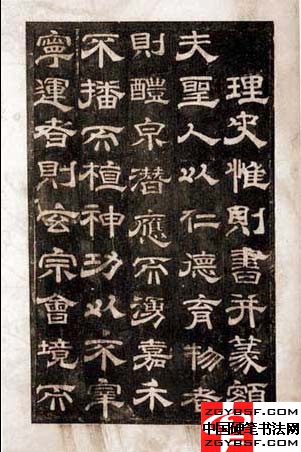 理史惟則書并篆額
夫聖人以仁德育物者
則醴泉潛應而湧嘉禾
不播而植神功以不宰
寧運者則玄宗會境而
ZGYBSF.COM
中国硬笔书法网
ZGYBSF.COM